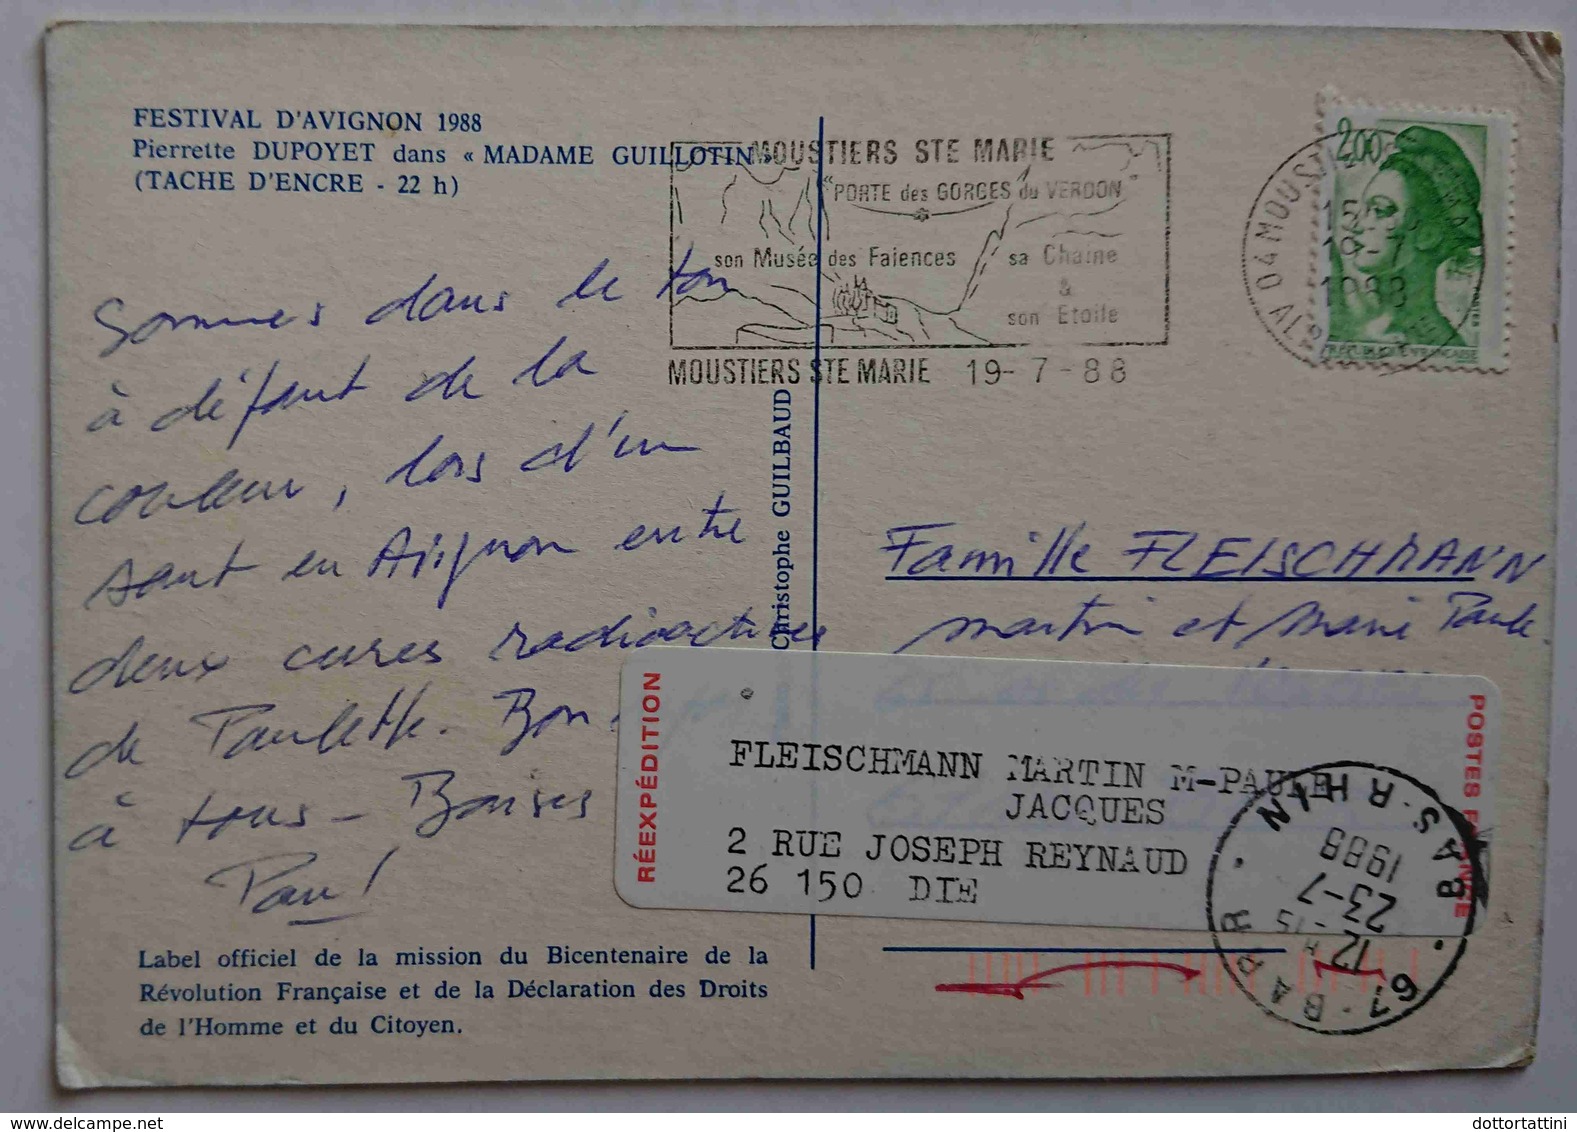 FESTIVAL D'AVIGNON 1988
Pierrette DUPOYET dans « MADAME GUILLOTIN »
(TACHE D'ENCRE - 22 h)
Sommes dans le ton
à défaut de la
couleur, lors d'un
saut en Avignon entre
deux cures radioactives
de Paulette. Bon
à tous - Bonises
Label officiel de la mission du Bicentenaire de la
Révolution Française et de la Déclaration des Droits
de l'Homme et du Citoyen.
Christophe GUILBAUD
MOUSTIERS STE MARIE
"PORTE des GORGES du VERDON"
son Musée des Faiences
sa Chaine
&
son Etoile
MOUSTIERS STE MARIE 19-7-88
2,00
04 MOUST
19-7
1988
Famille FLEISCHMANN
Martin et Marie Paule
RÉEXPÉDITION
FLEISCHMANN MARTIN M-PAULE
JACQUES
2 RUE JOSEPH REYNAUD
26 150 DIE
POSTES FRANCE
67 · BARR · BAS-RHIN
12 H 15
23-7
1988
dottortattini